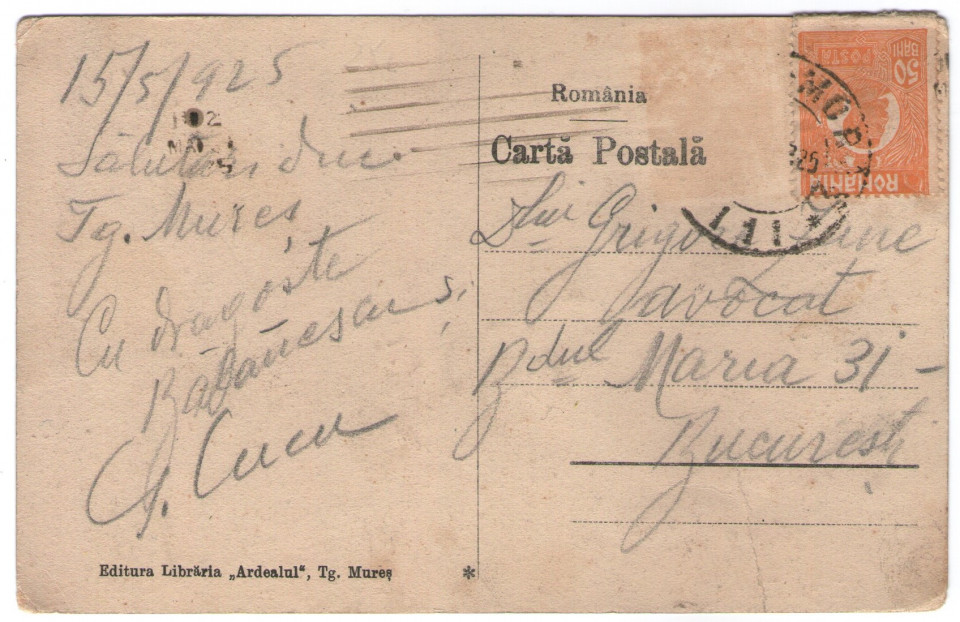 15/5/925
Salutări din
Tg. Mureș
Cu dragoste
și
G. Cucu
Editura Librăria „Ardealul“, Tg. Mureș
*
România
Cartă Postală
50
BANI
POSTA
ROMANIA
MUR
925
11
*
Dlui Grigore
avocat
Bdul Maria 31 -
București